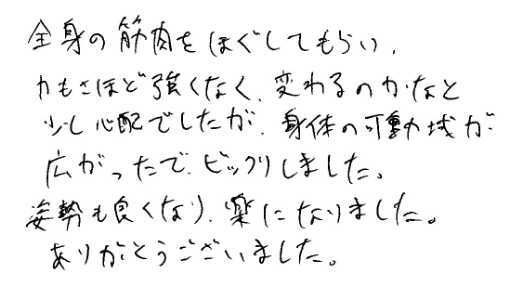 全身の筋肉をほぐしてもらい、
力もさほど強くなく、変わるのかなと
少し心配でしたが、身体の可動域が
広がったで、ビックリしました。
姿勢も良くなり、楽になりました。
ありがとうございました。